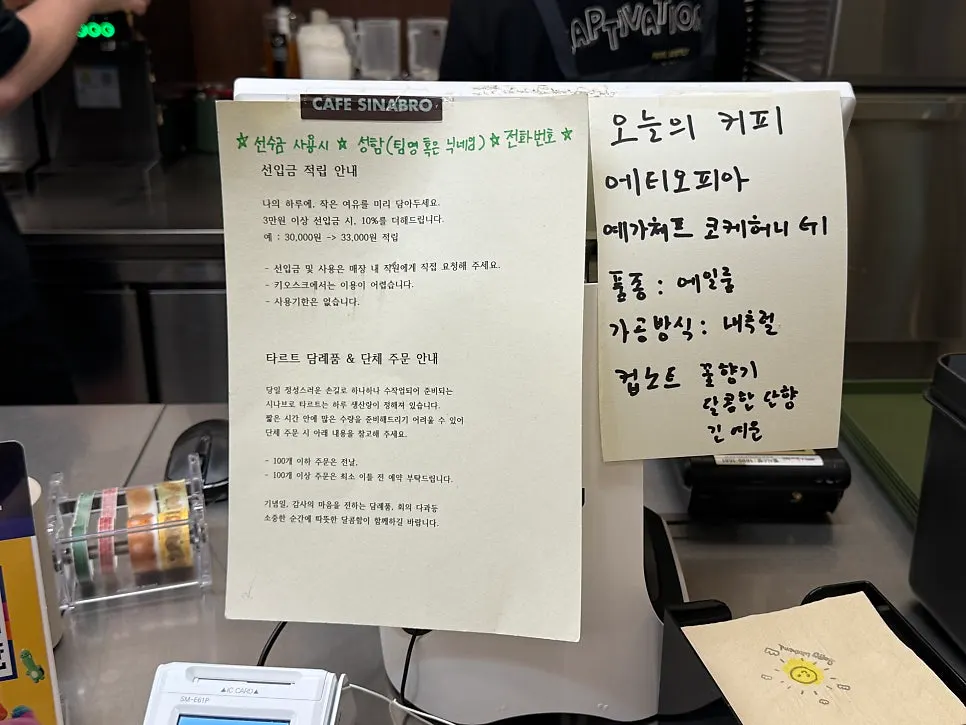 CAPTIVATION
CAFE SINABRO
☆ 선수금 사용시 ☆ 성함(팀명 혹은 닉네임) ☆ 전화번호 ☆
선입금 적립 안내
나의 하루에, 작은 여유를 미리 담아두세요.
3만원 이상 선입금 시, 10%를 더해드립니다.
예 : 30,000원 -> 33,000원 적립
- 선입금 및 사용은 매장 내 직원에게 직접 요청해 주세요.
- 키오스크에서는 이용이 어렵습니다.
- 사용기한은 없습니다.
타르트 답례품 & 단체 주문 안내
당일 정성스러운 손길로 하나하나 수작업되어 준비되는
시나브로 타르트는 하루 생산량이 정해져 있습니다.
짧은 시간 안에 많은 수량을 준비해드리기 어려울 수 있어
단체 주문 시 아래 내용을 참고해 주세요.
- 100개 이하 주문은 전날,
- 100개 이상 주문은 최소 이틀 전 예약 부탁드립니다.
기념일, 감사의 마음을 전하는 답례품, 회의 다과등
소중한 순간에 따뜻한 달콤함이 함께하길 바랍니다.
오늘의 커피
에티오피아
예가체프 코케허니 G1
품종 : 에얼룸
가공방식 : 내추럴
컵노트 꽃향기
달콤한 단향
긴 여운
▲IC CARD▲
SM-E61P